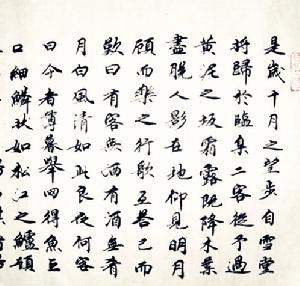 是歲十月之望步自雪堂
將歸於臨皋二客從予過
黃泥之坂霜露既降木葉
盡脫人影在地仰見明月
顧而樂之行歌互答已而
歎曰有客無酒有酒無肴
月白風清如此良夜何客
曰今者薄暮舉網得魚巨
口細鱗狀如松江之鱸顧